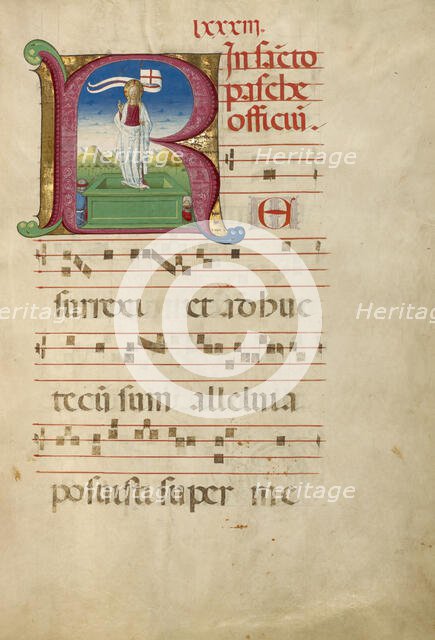 lxxxiii.
In sācto
pasche
officiuʒ.
R E
surrexi et adhuc
tecū sum alleluia
posuisti super me
Heritage
Heritage
Heritage
Heritage
Heritage
Heritage
Heritage
Heritage
©